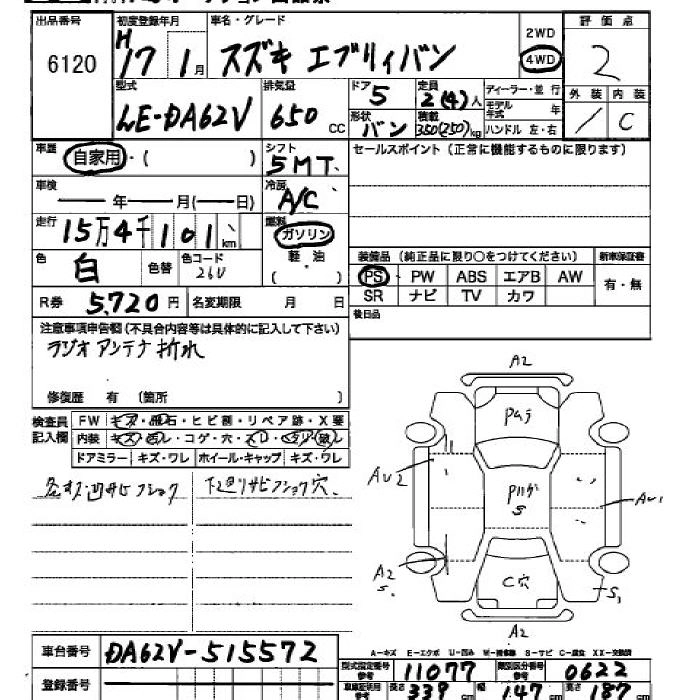 出品番号 初度登録年月 車名・グレード 2WD 評価点
6120 H17 1月 スズキ エブリィバン 4WD 2
型式 排気量 ドア 定員 ディーラー・並行 外装 内装
LE-DA62V 650cc 5 2(4)人 モデル年式 年 / C
形状 バン 積載 350(250)kg ハンドル 左・右
車歴 自家用・( ) シフト 5MT. セールスポイント (正常に機能するものに限ります)
車検 年 月(日) 冷房 A/C
走行 15万4千101km 燃料 ガソリン
色 白 色替 色コード 26U 軽・油 ( )
装備品 (純正品に限り○をつけてください) 新車保証書
PS PW ABS エアB AW 有・無
SR ナビ TV カワ
R券 5,720円 名変期限 月 日 後日品
注意事項申告欄(不具合内容等は具体的に記入して下さい)
ラジオアンテナ折れ
修復歴 有 (箇所 )
検査員記入欄 FW キズ・飛石・ヒビ割・リペア跡・X要
内装 キズ・コゲ・穴
ドアミラー キズ・ワレ ホイール・キャップ キズ・ワレ
各キズ凹サビフショク 下廻りサビフショク穴.
A2
Pムラ
AU2 Pハゲ S AU1
A2 S. C穴 S1
A2
A-キズ E-エクボ U-凹み W-補修跡 S-サビ C-腐食 XX-交換済
車台番号 DA62V-515572
型式指定番号 参考 11077 類別区分番号 参考 0622
登録番号 車庫証明用 参考 長さ 339cm 幅 147cm 高さ 187cm